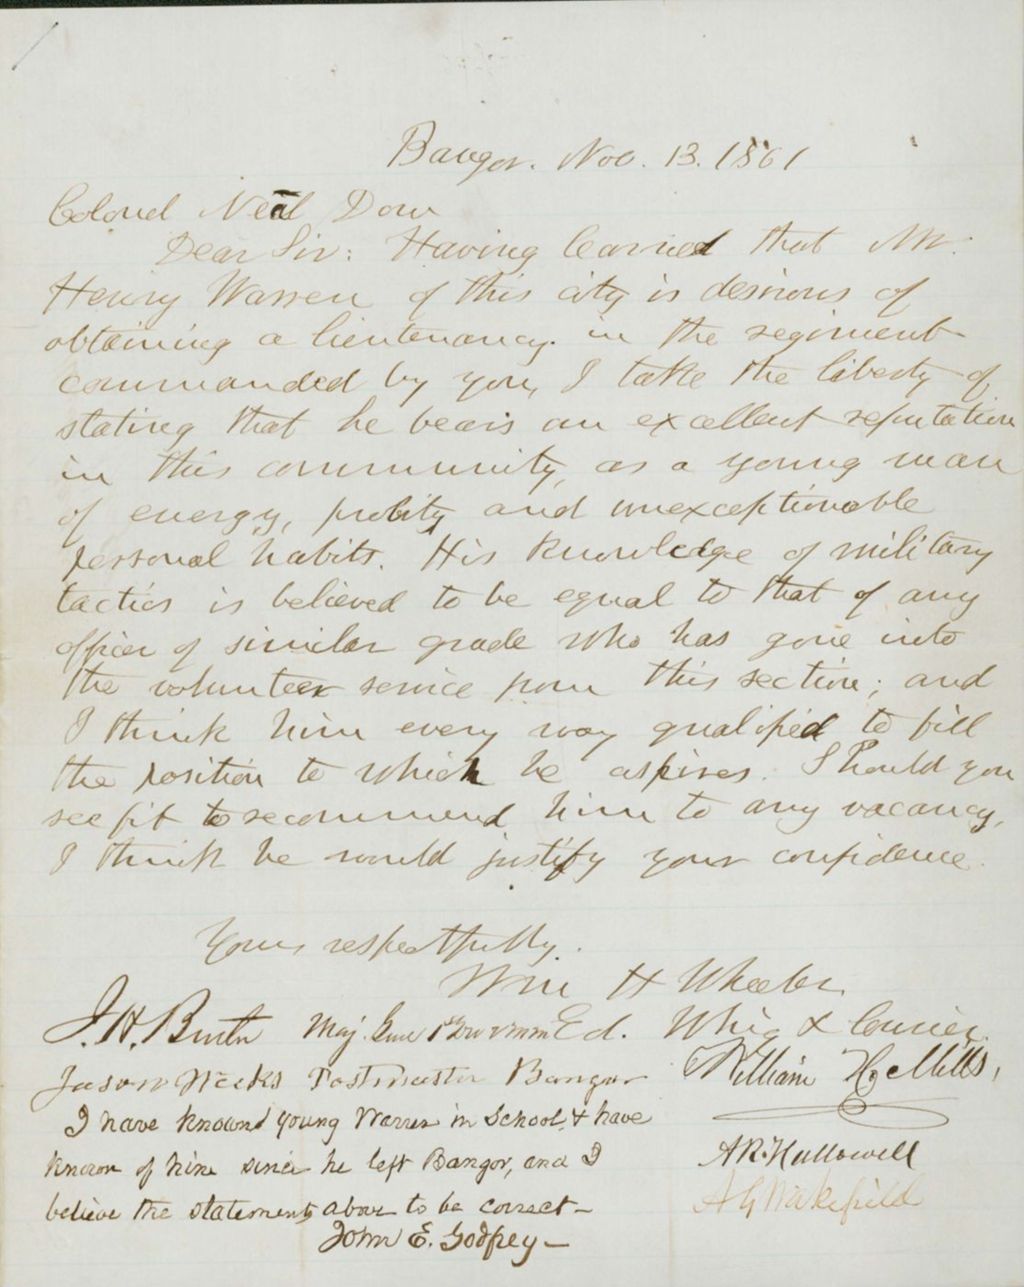 Bangor. Nov. 13. 1861
Colonel Neal Dow
Dear Sir: Having learned that Mr.
Henry Warren of this city is desirous of
obtaining a lieutenancy in the regiment
commanded by you, I take the liberty of
stating that he bears an excellent reputation
in this community, as a young man
of energy, probity and unexceptionable
personal habits. His knowledge of military
tactics is believed to be equal to that of any
officer of similar grade who has gone into
the volunteer service from this section; and
I think him every way qualified to fill
the position to which he aspires. Should you
see fit to recommend him to any vacancy,
I think he would justify your confidence.
Yours respectfully.
Wm H Wheeler
Ed. Whig & Courier.
J. H. Burtn Maj. Gen 1st Div
Jason Weeks Postmaster Bangor
William H. Mills,
I have known young Warren in School, & have
known of him since he left Bangor, and I
believe the statements above to be correct-
John E. Godfrey-
A G Wakefield